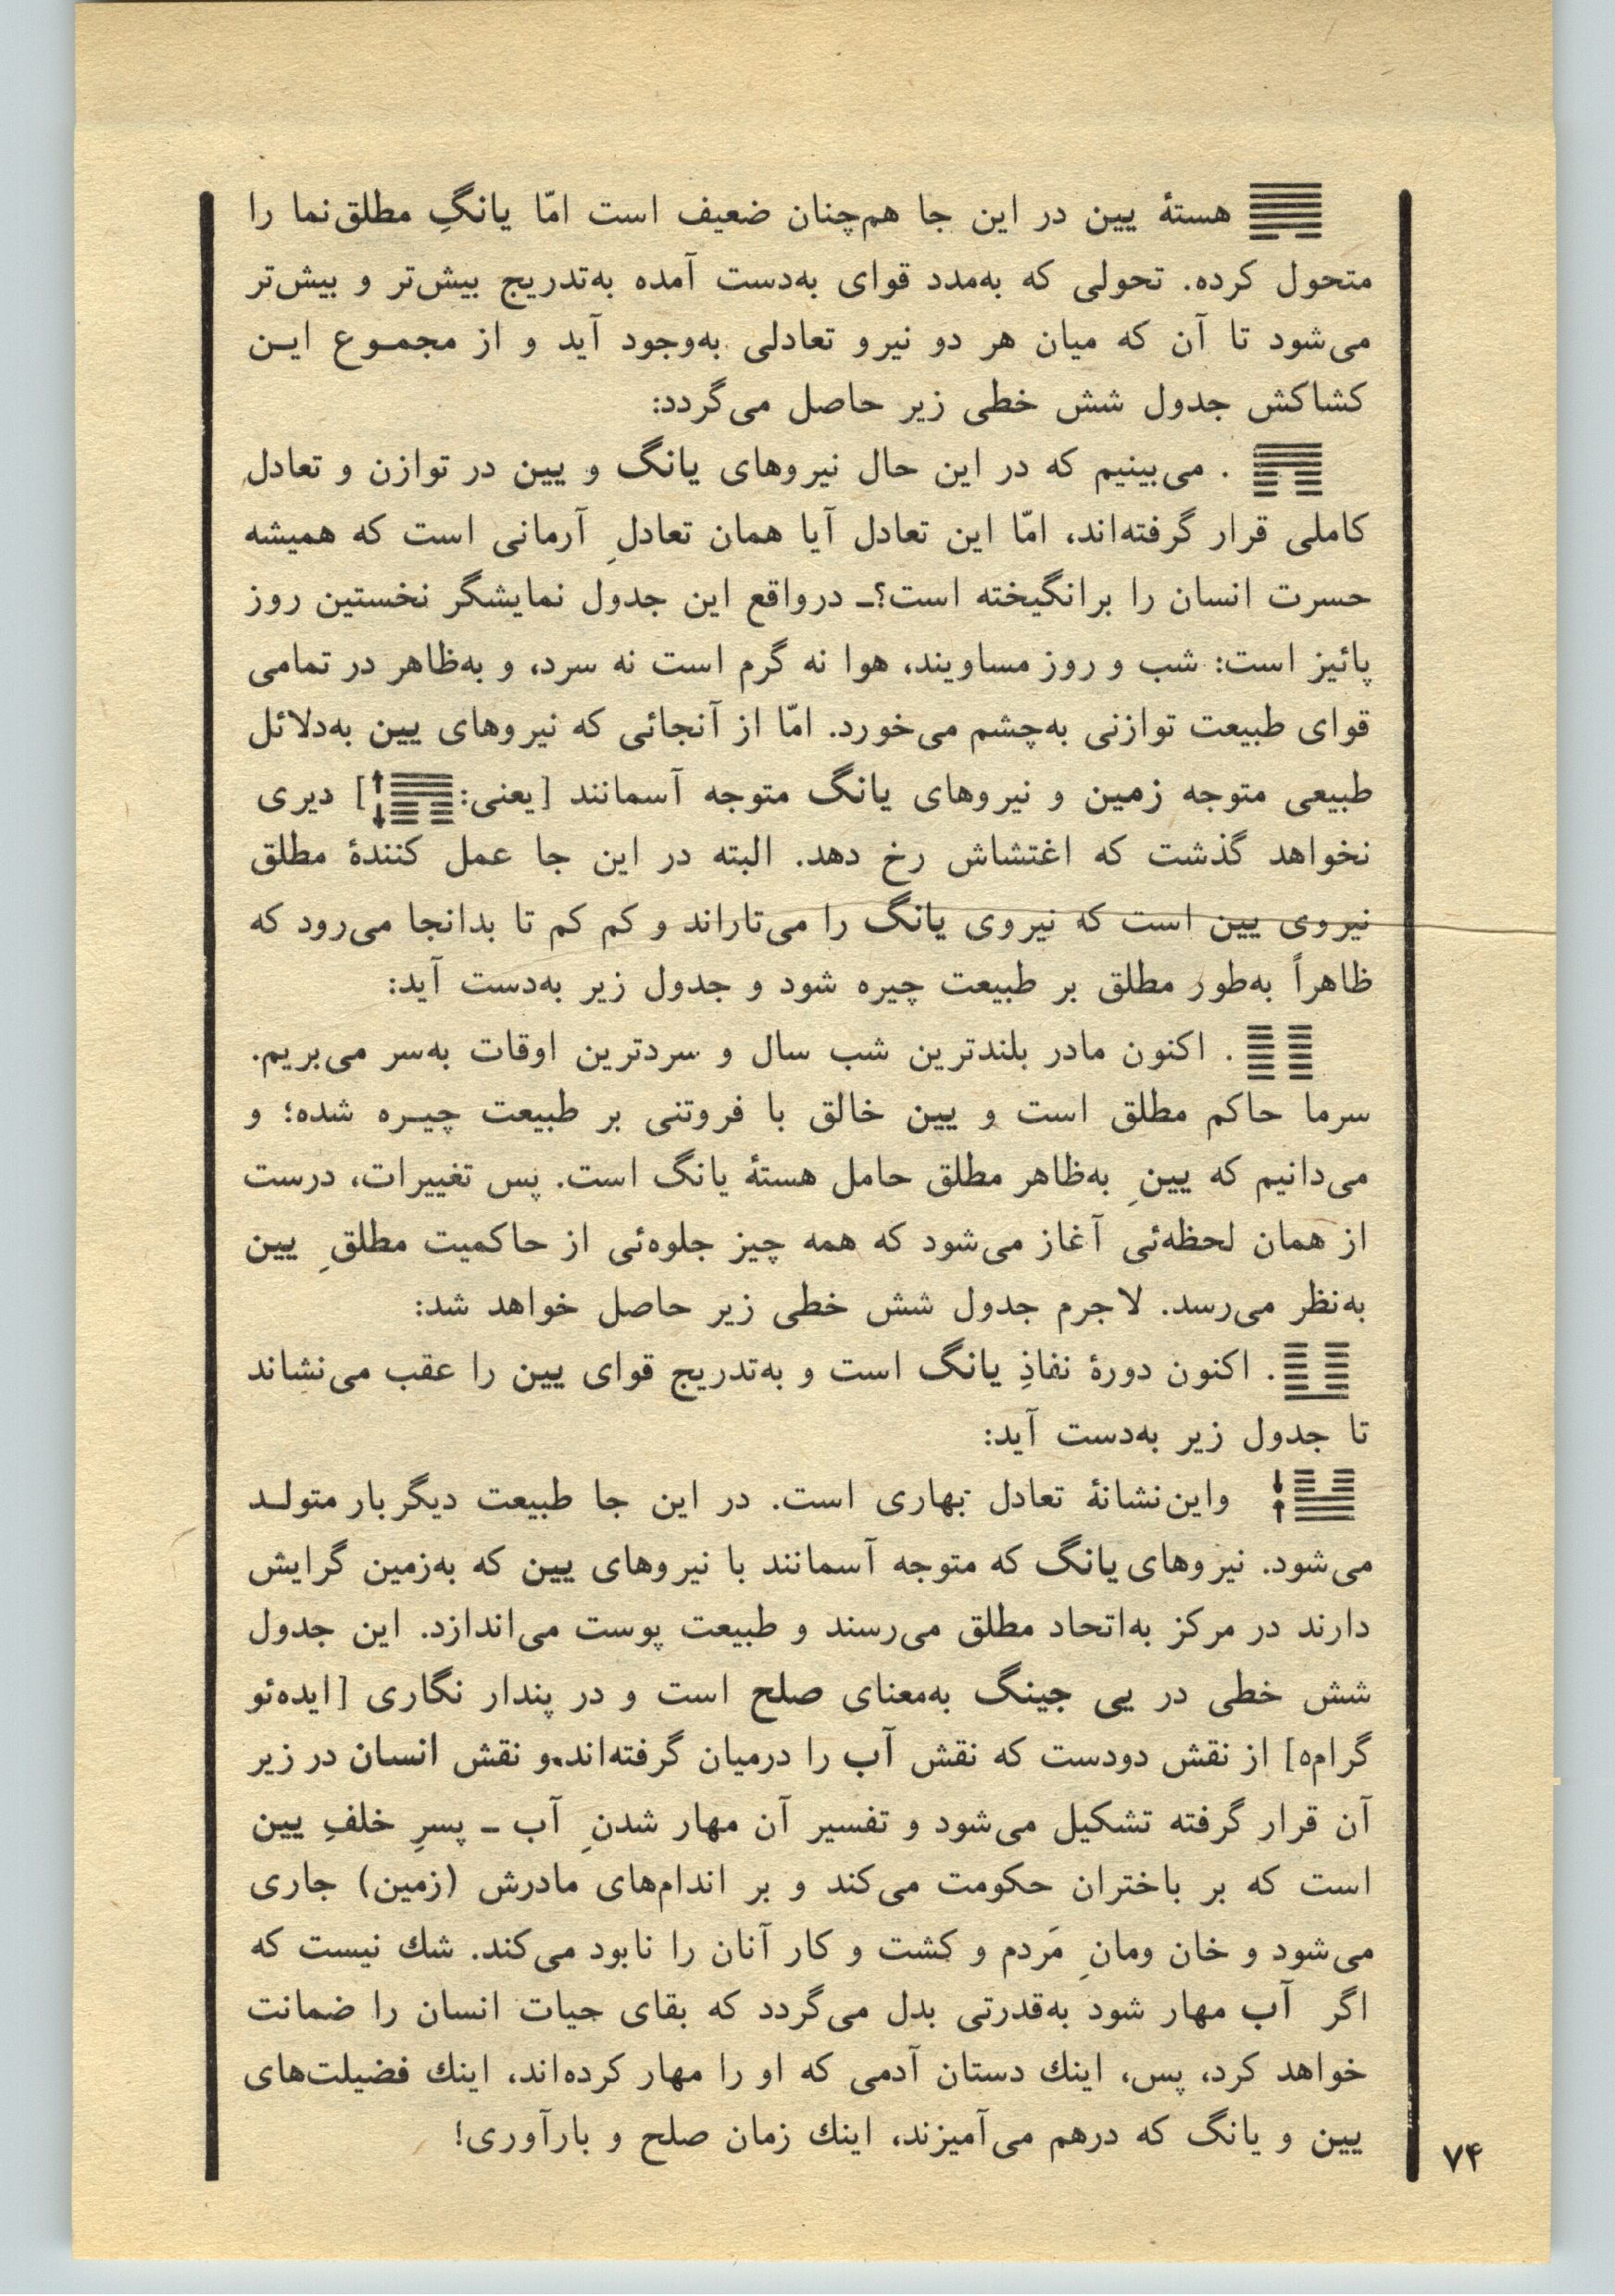 هستهٔ یین در این جا هم‌چنان ضعیف است امّا یانگِ مطلق‌نما را
متحول کرده. تحولی که به‌مدد قوای به‌دست آمده به‌تدریج بیش‌تر و بیش‌تر
می‌شود تا آن که میان هر دو نیرو تعادلی به‌وجود آید و از مجموع این
کشاکش جدول شش خطی زیر حاصل می‌گردد:
. می‌بینیم که در این حال نیروهای یانگ و یین در توازن و تعادلِ
کاملی قرار گرفته‌اند، امّا این تعادل آیا همان تعادلِ آرمانی است که همیشه
حسرت انسان را برانگیخته است؟ــ درواقع این جدول نمایشگر نخستین روز
پائیز است: شب و روز مساویند، هوا نه گرم است نه سرد، و به‌ظاهر در تمامی
قوای طبیعت توازنی به‌چشم می‌خورد. امّا از آنجائی که نیروهای یین به‌دلائل
طبیعی متوجه زمین و نیروهای یانگ متوجه آسمانند [یعنی: ↑↓] دیری
نخواهد گذشت که اغتشاش رخ دهد. البته در این جا عمل کنندهٔ مطلق
نیروی یین است که نیروی یانگ را می‌تاراند و کم کم تا بدانجا می‌رود که
ظاهراً به‌طور مطلق بر طبیعت چیره شود و جدول زیر به‌دست آید:
. اکنون مادر بلندترین شب سال و سردترین اوقات به‌سر می‌بریم.
سرما حاکم مطلق است و یین خالق با فروتنی بر طبیعت چیره شده؛ و
می‌دانیم که یینِ به‌ظاهر مطلق حامل هستهٔ یانگ است. پس تغییرات، درست
از همان لحظه‌ئی آغاز می‌شود که همه چیز جلوه‌ئی از حاکمیت مطلقِ یین
به‌نظر می‌رسد. لاجرم جدول شش خطی زیر حاصل خواهد شد:
. اکنون دورهٔ نفاذِ یانگ است و به‌تدریج قوای یین را عقب می‌نشاند
تا جدول زیر به‌دست آید:
↓↑ واین‌نشانهٔ تعادل بهاری است. در این جا طبیعت دیگربار متولد
می‌شود. نیروهای یانگ که متوجه آسمانند با نیروهای یین که به‌زمین گرایش
دارند در مرکز به‌اتحاد مطلق می‌رسند و طبیعت پوست می‌اندازد. این جدول
شش خطی در یی جینگ به‌معنای صلح است و در پندار نگاری [ایده‌ئو
گرام۵] از نقش دودست که نقش آب را درمیان گرفته‌اند.و نقش انسان در زیر
آن قرار گرفته تشکیل می‌شود و تفسیر آن مهار شدنِ آب ــ پسرِ خلفِ یین
است که بر باختران حکومت می‌کند و بر اندام‌های مادرش (زمین) جاری
می‌شود و خان ومانِ مَردم و کشت و کار آنان را نابود می‌کند. شك نیست که
اگر آب مهار شود به‌قدرتی بدل می‌گردد که بقای حیات انسان را ضمانت
خواهد کرد، پس، اینك دستان آدمی که او را مهار کرده‌اند، اینك فضیلت‌های
یین و یانگ که درهم می‌آمیزند، اینك زمان صلح و بارآوری!
۷۴